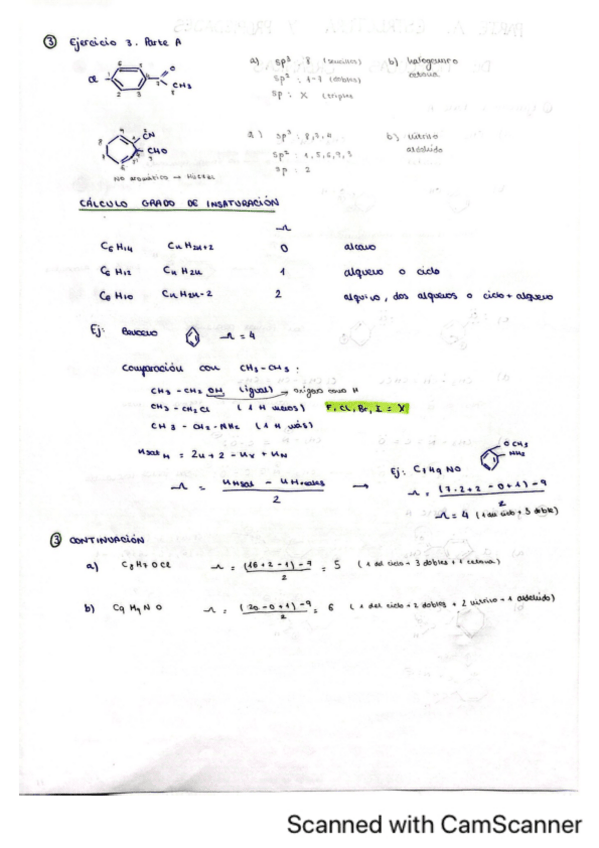 ③ Ejercicio 3. Parte A
a) sp³ 8 (sencillos) b) halogenuro
sp² : 1-7 (dobles) cetona
sp : X (triples)
Cl O CH₃
6 2 3 8
a) sp³ : 8,3,4 b) nitrilo
sp² : 1,5,6,7,9 aldehído
sp : 2
CN
CHO
NO aromático → HÜCKEL
CÁLCULO GRADO DE INSATURACIÓN
Ω
C₆H₁₄ CnH2n+2 0 alcano
C₆H₁₂ CnH2n 1 alqueno o ciclo
C₆H₁₀ CnH2n-2 2 alquino, dos alquenos o ciclo + alqueno
Ej: Benceno Ω = 4
Comparación con CH₃-CH₃ :
CH₃-CH₂ OH (igual) → oxígeno como H
CH₃-CH₂Cl (1 H menos) F, Cl, Br, I = X
CH₃-CH₂-NH₂ (1 H más)
nsat H = 2n + 2 - nX + nN
OCH₃
NH₂
Ω = nHsat - nHreales / 2 → Ej: C₇H₉NO
Ω = (7·2+2-0+1)-9 / 2
Ω = 4 (1 del ciclo + 3 doble)
③ CONTINUACIÓN
a) C₈H₇OCl Ω = (16+2-1)-7 / 2 = 5 (1 del ciclo + 3 dobles + 1 cetona)
b) C₉H₉NO Ω = (20-0+1)-9 / 2 = 6 (1 del ciclo + 2 dobles + 2 nitrilo + 1 aldehído)
Scanned with CamScanner